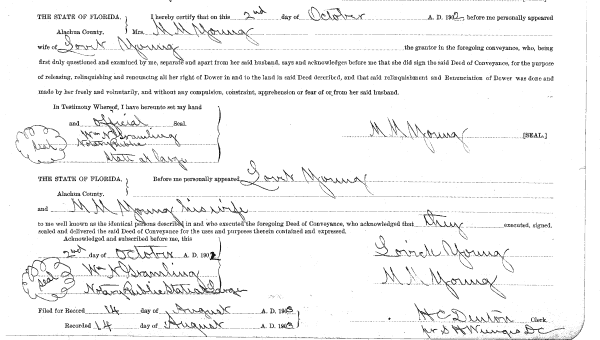 THE STATE OF FLORIDA, I hereby certify that on this 2nd day of October A. D. 1902 before me personally appeared
Alachua County. Mrs. M M Young
wife of Lovick Young the grantor in the foregoing conveyance, who, being
first duly questioned and examined by me, separate and apart from her said husband, says and acknowledges before me that she did sign the said Deed of Conveyance, for the purpose
of releasing, relinquishing and renouncing all her right of Dower in and to the land in said Deed described, and that said relinquishment and Renunciation of Dower was done and
made by her freely and voluntarily, and without any compulsion, constraint, apprehension or fear of or from her said husband.
In Testimony Whereof, I have hereunto set my hand
and official Seal.
Seal Wm N Gramling M M Young [SEAL.]
Notary Public
State at Large
THE STATE OF FLORIDA, Before me personally appeared Lovick Young
Alachua County.
and M. M. Young his wife
to me well known as the identical persons described in and who executed the foregoing Deed of Conveyance, who acknowledged that they executed, signed,
sealed and delivered the said Deed of Conveyance for the uses and purposes therein contained and expressed.
Acknowledged and subscribed before me, this
2nd day of October A. D. 1902 Lovick Young
Seal Wm N Gramling M M Young
Notary Public State at Large
Filed for Record 14 day of August A. D. 1903 H C Denton Clerk.
Recorded 14 day of August A. D. 1903 per S H D C